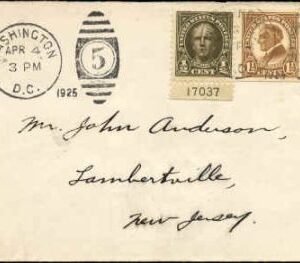 WASHINGTON
APR 4
3 PM
D.C.
1925
5
½ CENT ½
17037
1½
Mr. John Anderson,
Lambertville,
New Jersey.